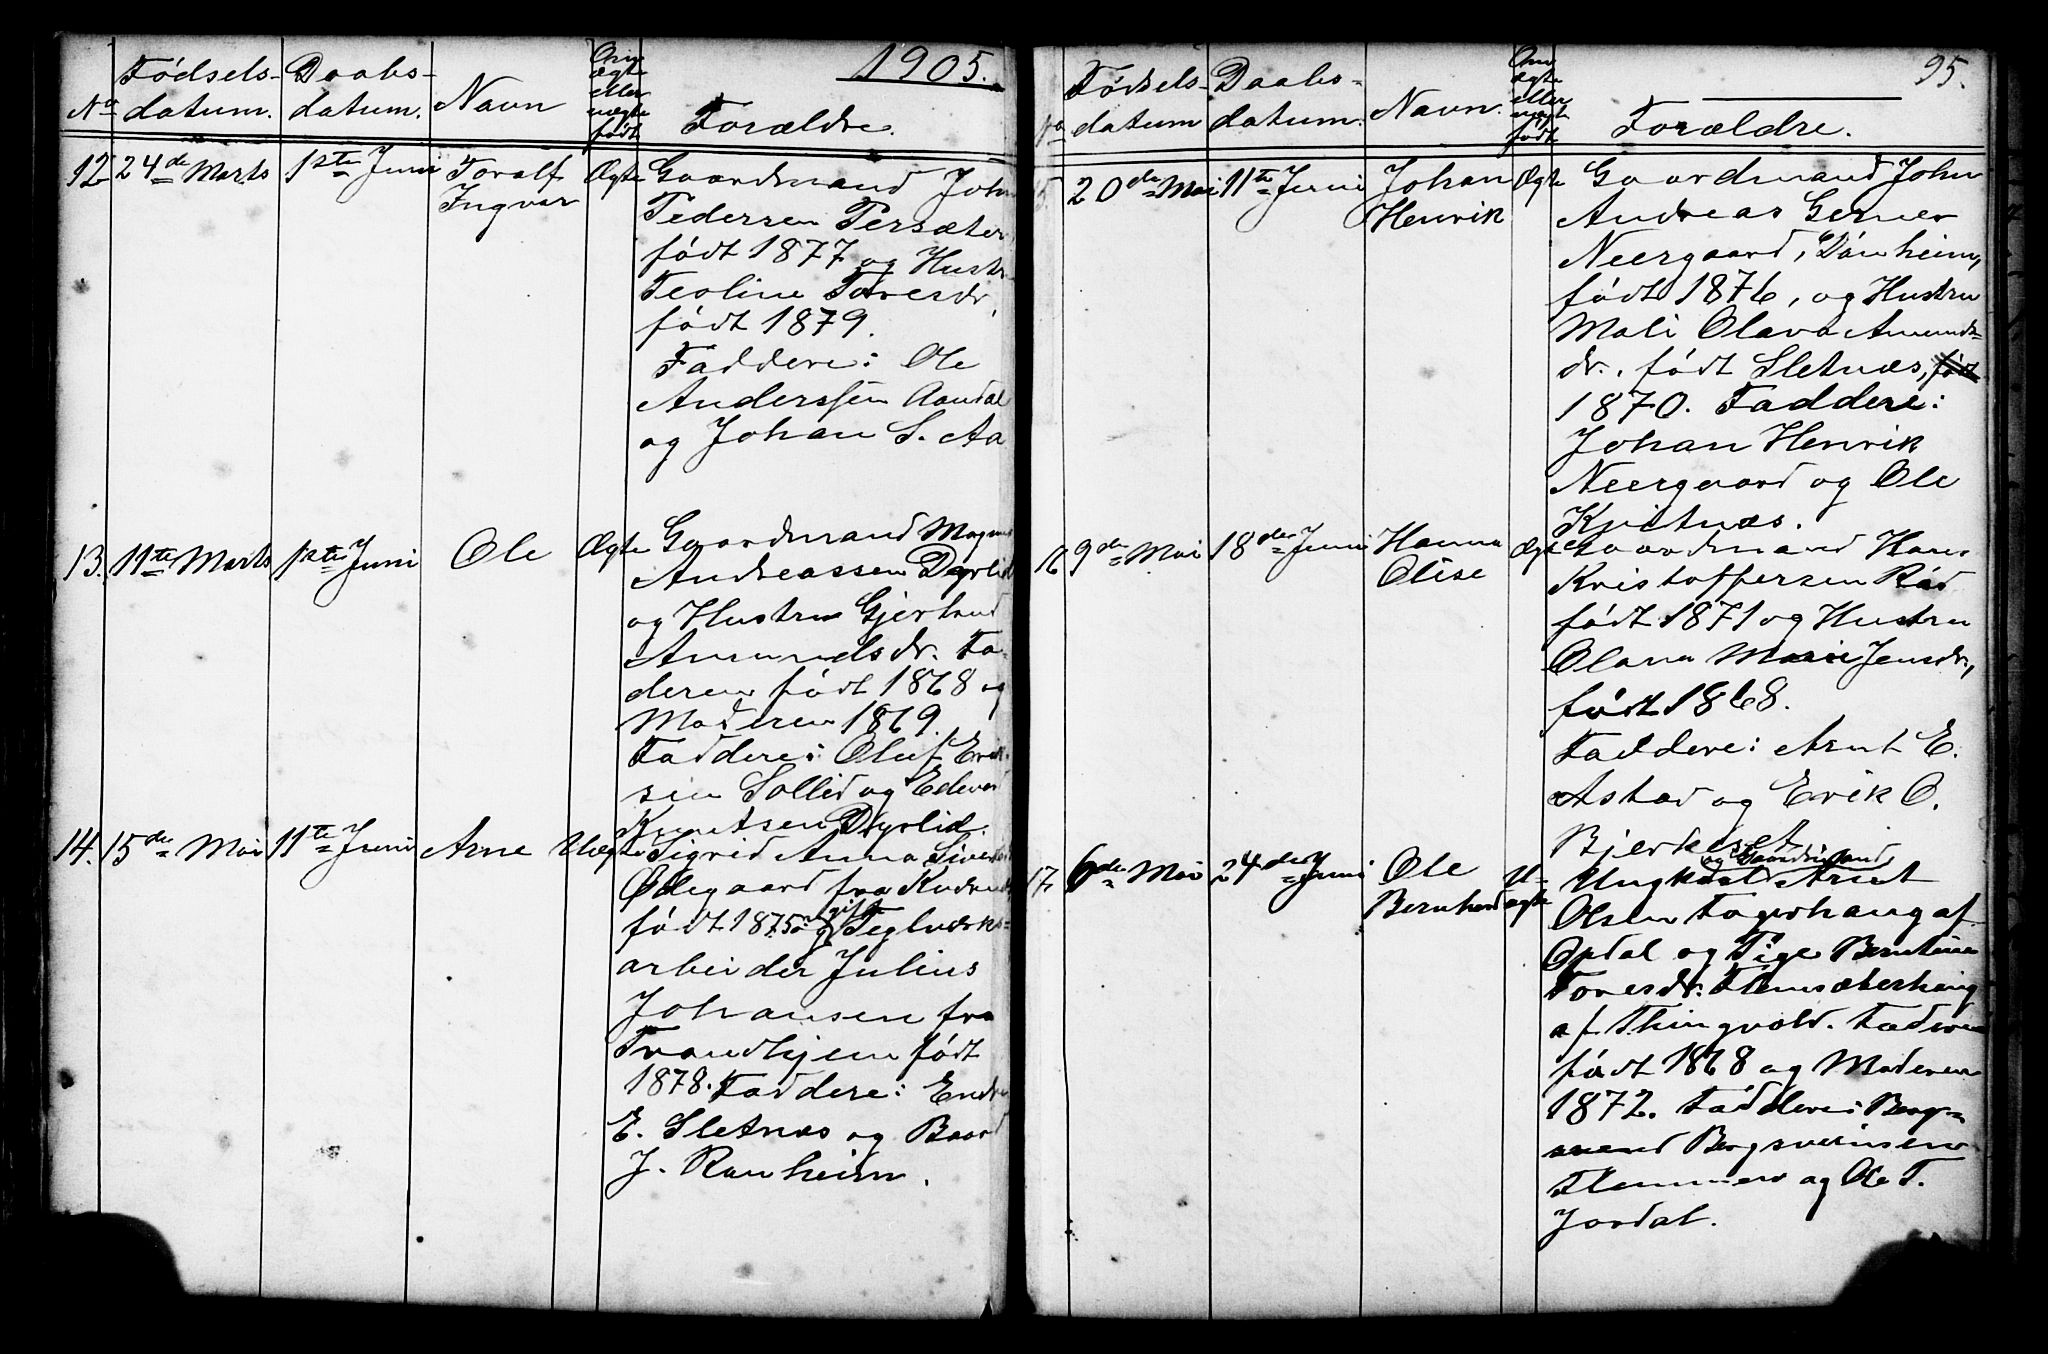 1905.
No
Fødsels-
datum.
Daabs-
datum.
Navn
Om
ægte
eller
uægte
født
Forældre.
12
24de Marts
1ste Juni
Toralf
Ingvar
Ægte
Gaardmand John
Pedersen Persæter,
født 1877 og Hustr
Peoline Toresdr,
født 1879.
Faddere: Ole
Anderssen Aandal
og Johan S. Aa
13.
11te Marts
1ste Juni
Ole
Ægte
Gaardmand Magnus
Andreassen Dyrlid
og Hustru Gjertrud
Amundsdr. Fa-
deren født 1868 og
Moderen 1869.
Faddere: Oluf Erik-
sen Sollid og Edevard
Knutsen Dyrlid.
14.
15de Mai
11te Juni
Arne
Uægte
Sigrid Anna Siverts
Ødegaard fra
født 1875 og gift Teglværks-
arbeider Julius
Johansen fra
Trondhjem født
1878. Faddere: Endre
E. Sletnæs og Baard
J. Ranheim.
95.
No
Fødsels-
datum
Daabs-
datum.
Navn.
Om
ægte
eller
uægte
født
Forældre.
15
20de Mai
11te Juni
Johan
Henrik
Ægte
Gaardmand John
Andreas Gerner
Neergaard, Dønheim,
født 1876, og Hustru
Mali Olava Amunds-
dr., født Sletnæs, født
1870. Faddere:
Johan Henrik
Neergaard og Ole
Kjetnæs.
16
9de Mai
18de Juni
Hanna
Olise
Ægte
Gaardmand Hans
Kristoffersen Rød
født 1871 og Hustru
Olava Marie Jensdr,
født 1868.
Faddere: Arnt E.
Astad og Erik O.
Bjerkeset
17
6de Mai
24de Juni
Ole
Bernhard
U-
ægte
og Gaardmand
Ungkarl Arnt
Olsen Fagerhaug af
Opdal og Pige Berntine
Toresdr. Flemsæterhaug
af Thingvold. Faderen
født 1868 og Moderen
1872. Faddere: Berg-
svend Bergsveinsen
Flemmen og Ole T.
Jordal.